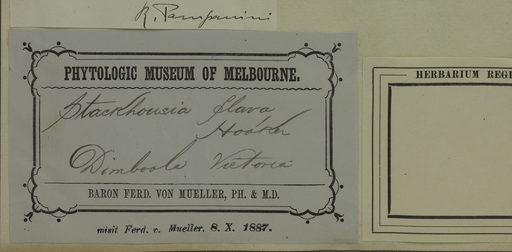 R. Pampanini
PHYTOLOGIC MUSEUM OF MELBOURNE.
Stackhousia flava
Hooker
Dimboola Victoria
BARON FERD. VON MUELLER, PH. & M.D.
misit Ferd. v. Mueller. 8. X. 1887.
HERBARIUM REGI